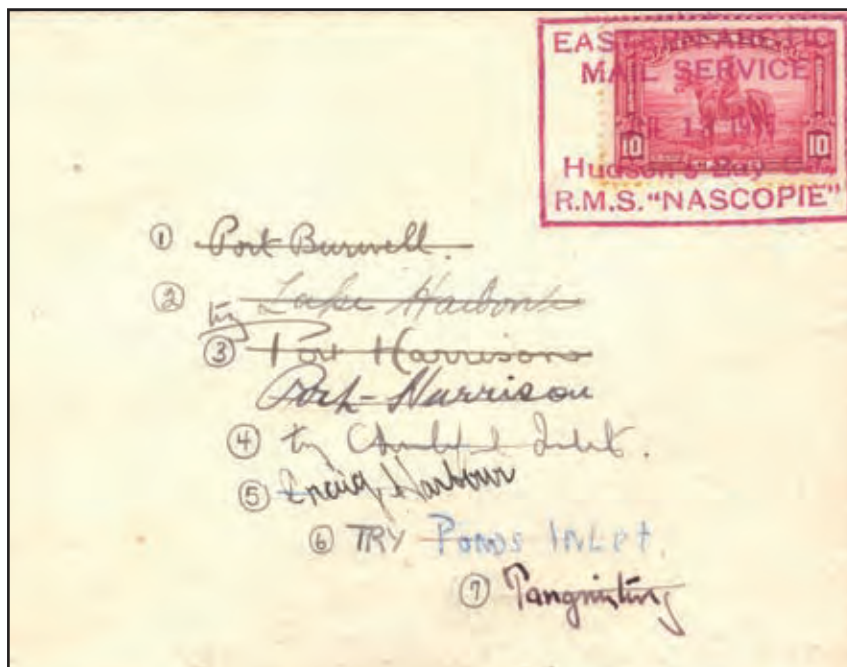 EASTERN ARCTIC
MAIL SERVICE
10 10
Hudson's Bay Co.
R.M.S. "NASCOPIE"
① Port Burwell.
② try Lake Harbour
③ Port Harrison
Port-Harrison
④ try Inlet.
⑤ Craig Harbour
⑥ TRY PONDS INLET.
⑦ Pangnirtung